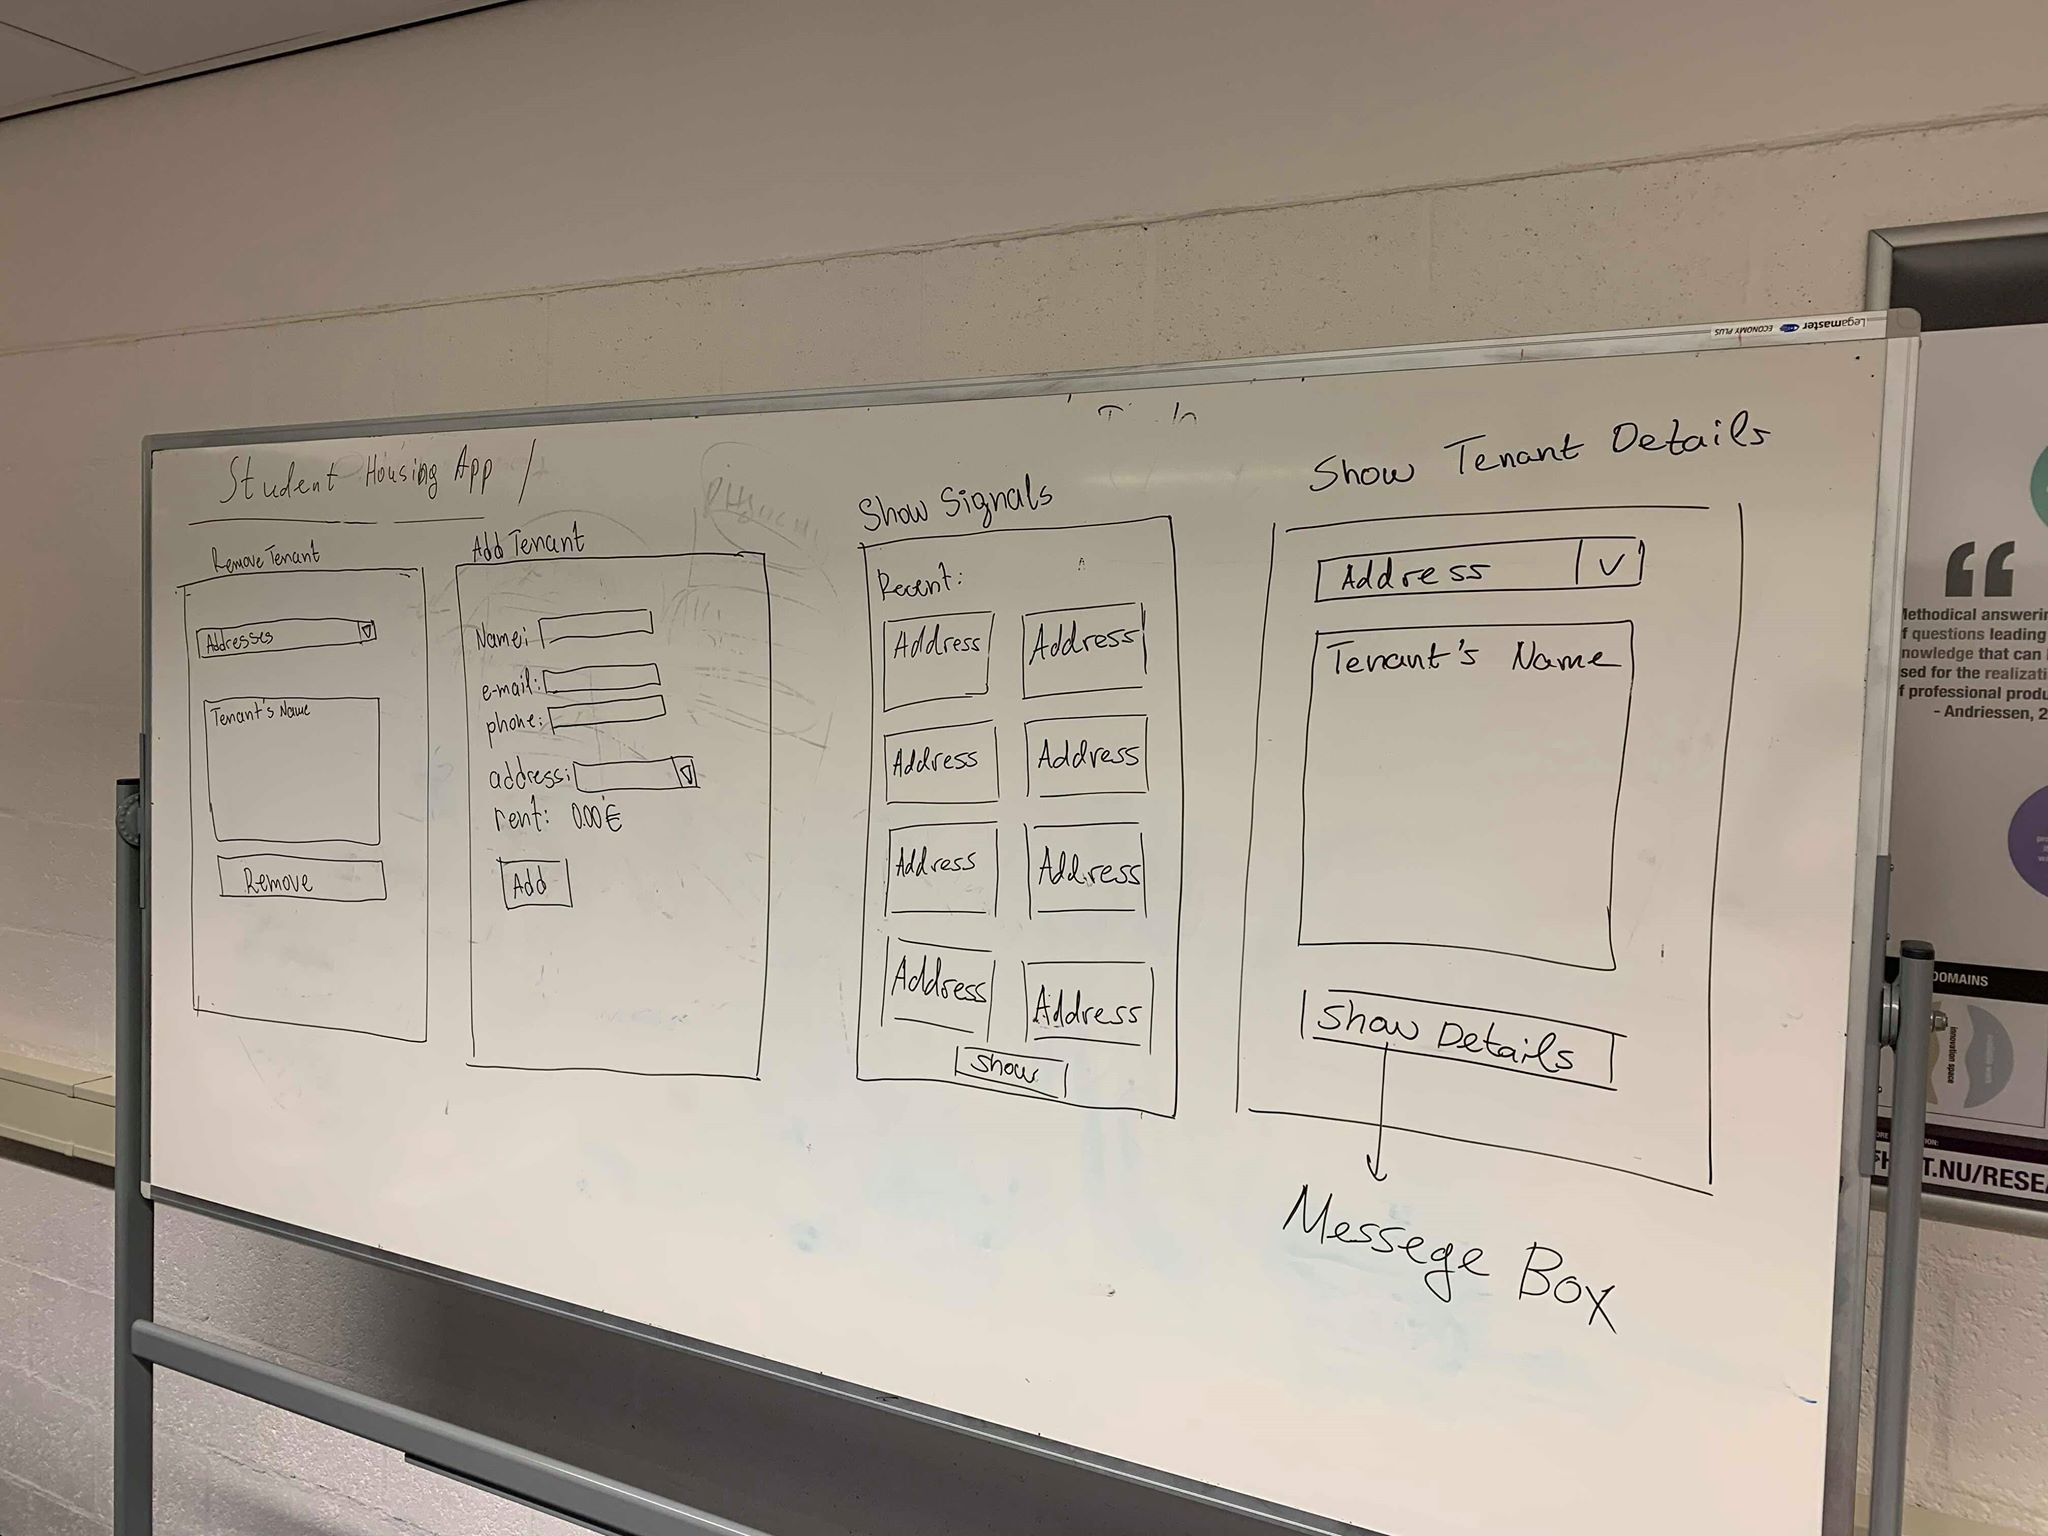 Legamaster ECONOMY PLUS
Student Housing App /
Remove Tenant
Addresses
Tenant's Name
Remove
Add Tenant
Name:
e-mail:
phone:
address:
rent: 0.00€
Add
Show Signals
Recent:
Address Address
Address Address
Address Address
Address Address
Show
Show Tenant Details
Address
Tenant's Name
Show Details
Messege Box
“
Methodical answerin
f questions leading
nowledge that can
sed for the realizati
f professional produ
- Andriessen, 2
DOMAINS
innovation space
T.NU/RESEA